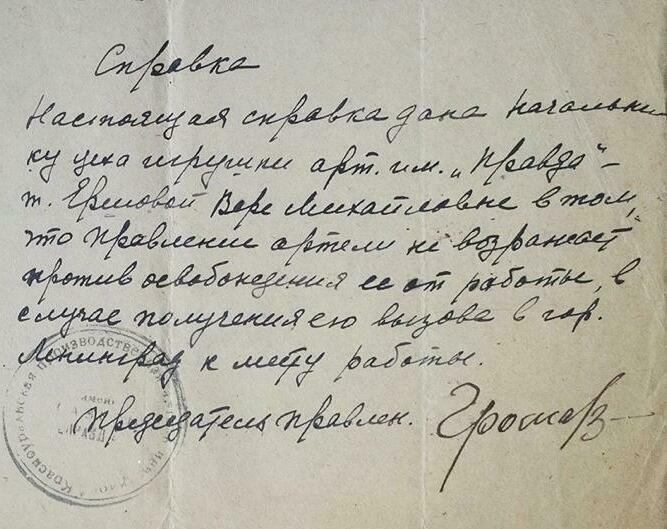 Справка
Настоящая справка дана Начальни
ку цеха игрушки арт. им. „Правда“ –
т. Ершовой Вере Михайловне в том,
что Правление артели не возражает
против освобождения ее от работы, в
случае получения ею вызова в гор.
Ленинград к месту работы.
Председатель правлен. Громов
Красноуральская производственная
имени
ПРАВДА